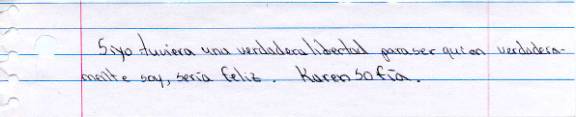 Si yo tuviera una verdadera libertad para ser quien verdadera-
mente soy, seria feliz. Karen Sofía.